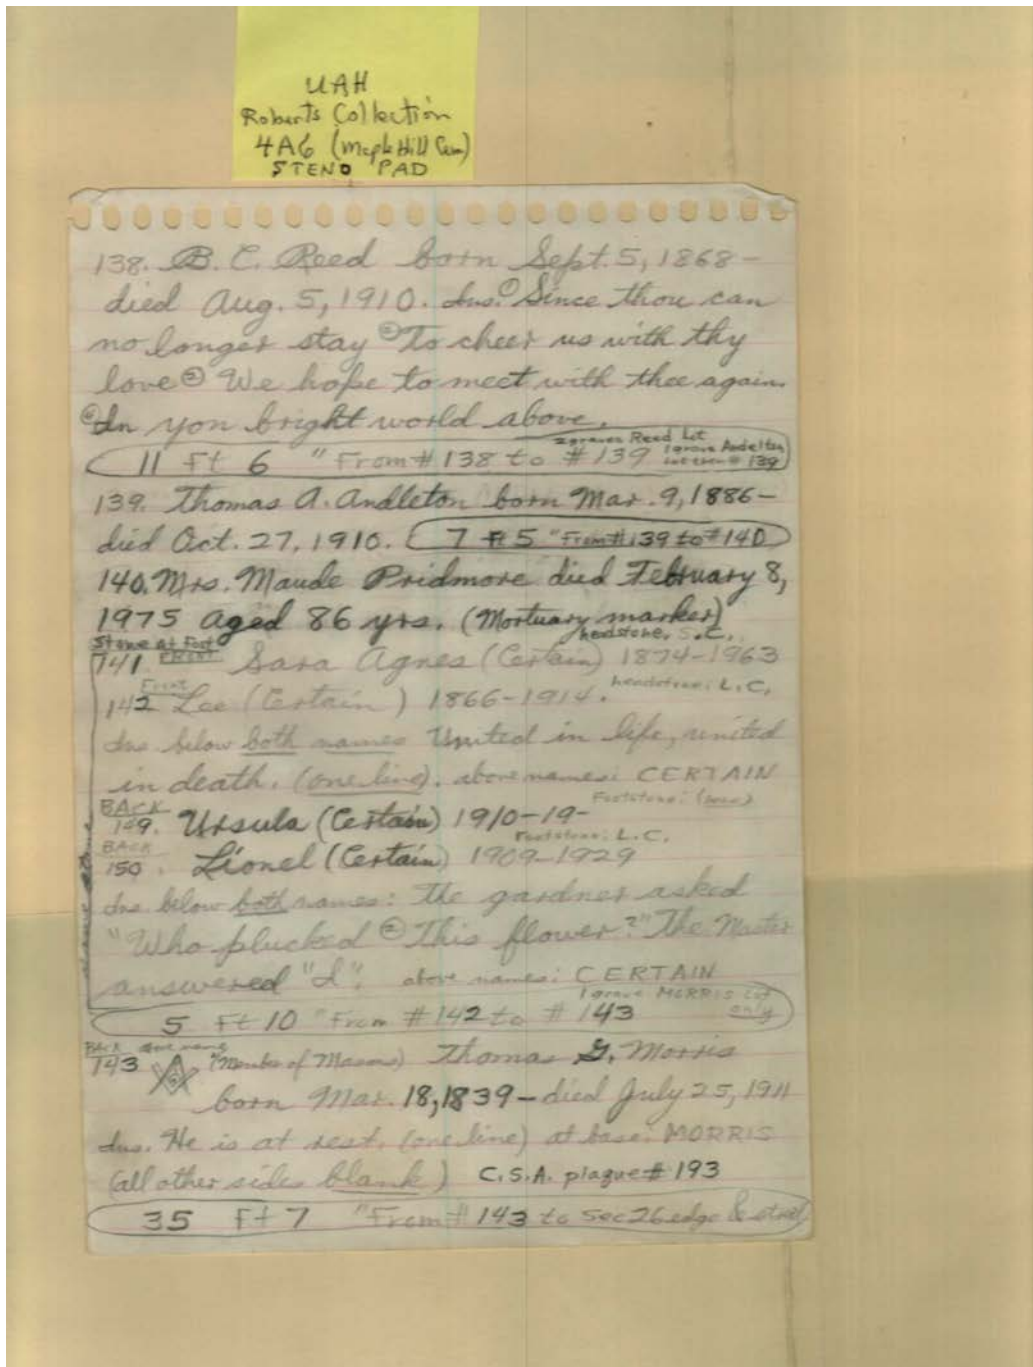 UAH
Roberts Collection
4A6 (Maple Hill Cem)
STENO PAD
138. B. C. Reed born Sept. 5, 1868-
died Aug. 5, 1910. Ins. ① Since thou can
no longer stay ② To cheer us with thy
love ③ We hope to meet with thee again.
④ In yon bright world above.
2 graves Reed Lot
11 Ft 6 " From # 138 to # 139 1 grave Andelton
lot then # 139
139. Thomas A. Andleton born Mar. 9, 1886-
died Oct. 27, 1910. 7 ft 5 "From # 139 to # 140
140. Mrs. Maude Pridmore died February 8,
1975 aged 86 yrs. (Mortuary marker)
Stone At Foot headstone, S.C.
141. FRONT Sara Agnes (Certain) 1874-1963
Front headstone: L.C.
142 Lee (Certain) 1866-1914.
Ins. below both names United in life, united
in death. (one line). above names: CERTAIN
BACK Footstone: (none)
149. Ursula (Certain) 1910-19-
BACK Footstone: L.C.
150. Lionel (Certain) 1909-1929
Ins. below both names: The gardner asked
"Who plucked ② This flower?" The Master
answered "I". above names: CERTAIN
1 grave MORRIS Lot
5 Ft 10 "From # 142 to # 143 only
BACK
143 (Member of Masons) Thomas G. Morris
born Mar. 18, 1839 - died July 25, 1911
Ins. He is at rest. (one line) at base: MORRIS
(all other sides blank) C.S.A. plaque # 193
35 Ft 7 "From # 143 to sec 26 edge &